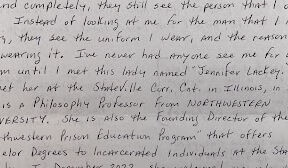 nd completely, they still see the person that I
Instead of looking at me for the man that I
, they see the uniform I wear, and the reason
wearing it. I've never had anyone see me for
m until I met this lady named Jennifer Lackey.
et her at the Stateville Corr. Cnt. in Illinois, in
is a Philosophy Professor from NORTHWESTERN
VERSITY. She is also the Founding Director of the
thwestern Prison Education Program" that offers
elor Degrees to incarcerated individuals at the Sta
December 2023